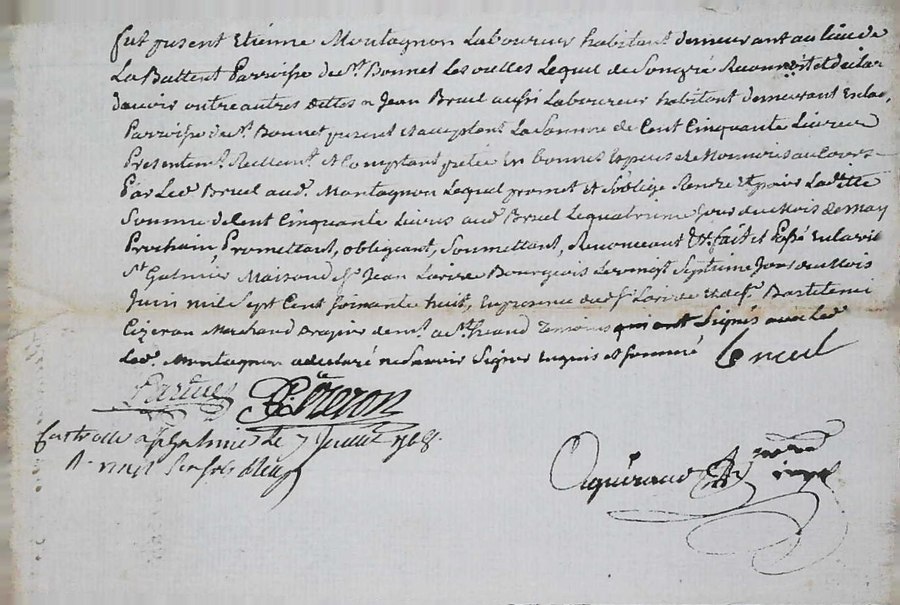 fut present Etienne Montagnon Laboureur habitant demeurant au lieu de
La Battent Parroisse de St. Bonnet Les oulles Lequel de Son gré Reconnoit et declar
davoir outre autres dettes a Jean Bruel aussi Laboureur habitant demeurant
Parroisse de St. Bonnet present et acceptant La Somme de Cent Cinquante Livres
Presentemt. Reellemt. et Comptant pretée en bonnes Especes de Monnoies au Cours
Par Led. Bruel aud. Montagnon Lequel promet et Soblige Rendre Et paier Lad.
Somme de Cent Cinquante Livres aud. Bruel Le quatrieme Jour du Mois de May
Prochain, Promettant, obligeant, Soumettant, Renonceant &c. fait et Passé En la vil
St Galmier Maison de Sr. Jean Bourgeois Le vingt Septieme Jour du Mois
Juin mil Sept Cent Soixante huit, En presence dud. Sr. et de Sr. Bartelemi
Cizeron Marchand Drapier demt. a St. temoins qui ont Signés avec Led.
Led. Montagnon a declaré ne Savoir Signer Enquis et Sommé
Cizeron
Controllé a St Galmier Le 7 Juillet 1768.
R.